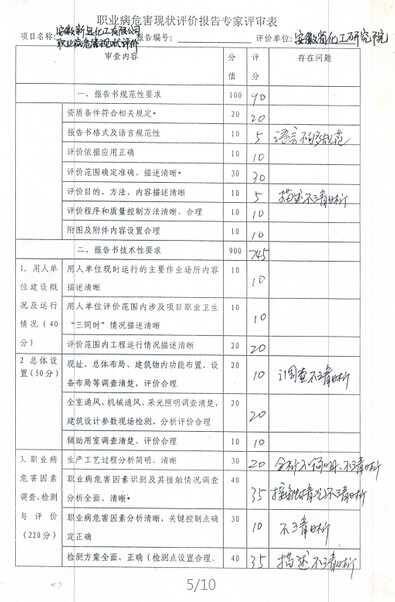 职业病危害现状评价报告专家评审表
项目名称: 安徽新 化工有限公司 职业病危害现状评价 报告编号: 评价单位: 安徽省化工研究院
审查内容 分值 评分 存在问题
一、报告书规范性要求 100 90
资质条件符合相关规定* 20 20
报告书格式及语言规范性 10 5 语言不够规范
评价依据应用正确 10 10
评价范围确定准确、描述清晰* 30 30
评价目的、方法、内容描述清晰 10 5 描述不清晰
评价程序和质量控制方法清晰、合理 10 10
附图及附件内容设置合理 10 10
二、报告书技术性要求 900 745
1、用人单位建设概况及运行情况(40分)
用人单位现时运行的主要作业场所内容描述清晰 10 10
用人单位评价范围内涉及项目职业卫生“三同时”情况描述清晰 10 10
评价范围内工程运行情况描述清晰 20 20
2 总体设置(50分)
现址、总体布局、建筑物内功能布置、设备布局等调查清楚、评价合理 20 10 调查不清晰
全室通风、机械通风、采光照明调查清楚,建筑设计参数现场检测,分析评价合理 20 20
辅助用室调查清楚、评价合理 10 10
3、职业病危害因素调查、检测与评价(220分)
生产工艺过程分析简明、清晰 30 20 分析不简明、不清晰
职业病危害因素识别及其接触情况调查分析全面、清晰* 40 35 接触情况不清晰
职业病危害因素分析清晰,关键控制点确定正确 30 10 不清晰
检测方案全面、正确(检测点设置合理、 40 35 描述不清晰
5/10